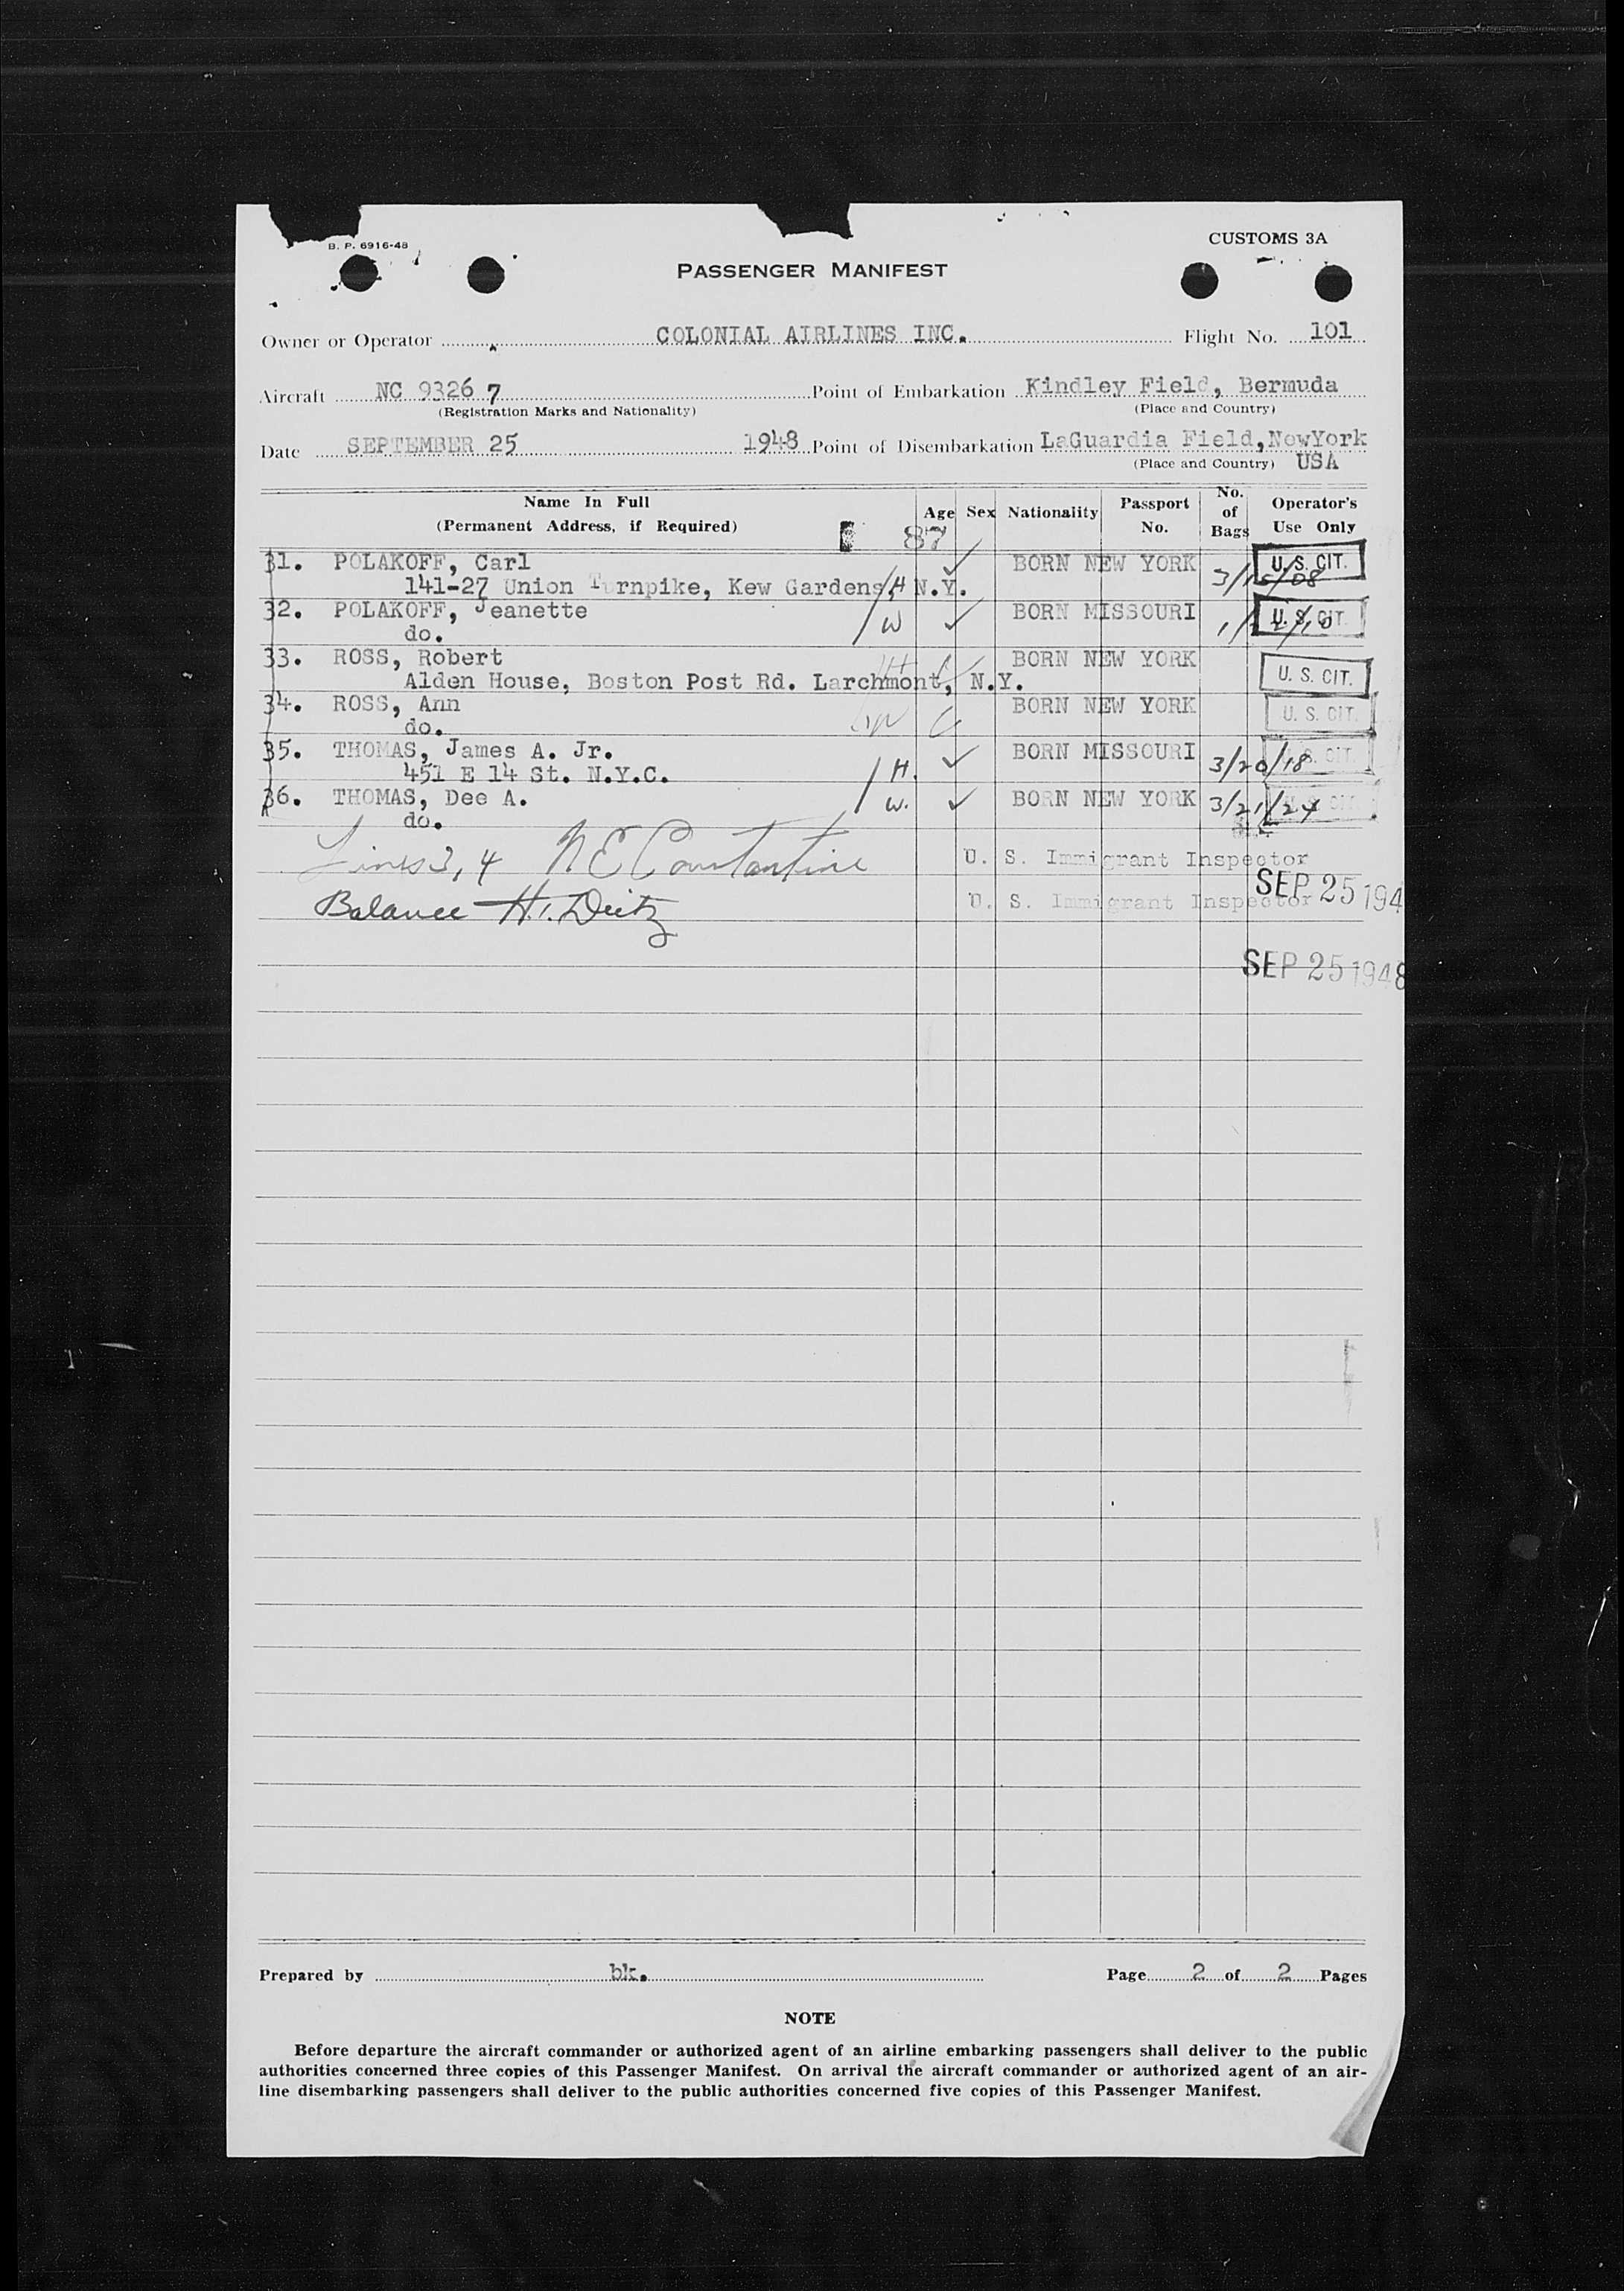 B. P. 6916-48
CUSTOMS 3A
PASSENGER MANIFEST
Owner or Operator COLONIAL AIRLINES INC. Flight No. 101
Aircraft NC 93267 Point of Embarkation Kindley Field, Bermuda
(Registration Marks and Nationality) (Place and Country)
Date SEPTEMBER 25 1948 Point of Disembarkation LaGuardia Field, NewYork
(Place and Country) USA
Name In Full (Permanent Address, if Required) Age Sex Nationality Passport No. No. of Bags Operator's Use Only
87
31. POLAKOFF, Carl BORN NEW YORK U. S. CIT.
141-27 Union Turnpike, Kew Gardens, N.Y. H 3/15/08
32. POLAKOFF, Jeanette W BORN MISSOURI U. S. CIT.
do.
33. ROSS, Robert BORN NEW YORK U. S. CIT.
Alden House, Boston Post Rd. Larchmont, N.Y.
34. ROSS, Ann BORN NEW YORK U. S. CIT.
do.
35. THOMAS, James A. Jr. H. BORN MISSOURI 3/20/18 U. S. CIT.
451 E 14 St. N.Y.C.
36. THOMAS, Dee A. W. BORN NEW YORK 3/21/24 U. S. CIT.
do.
Lines 3, 4 N E Constantine U. S. Immigrant Inspector
Balance H. Deitz U. S. Immigrant Inspector SEP 25 194
SEP 25 1948
Prepared by bk. Page 2 of 2 Pages
NOTE
Before departure the aircraft commander or authorized agent of an airline embarking passengers shall deliver to the public
authorities concerned three copies of this Passenger Manifest. On arrival the aircraft commander or authorized agent of an air-
line disembarking passengers shall deliver to the public authorities concerned five copies of this Passenger Manifest.